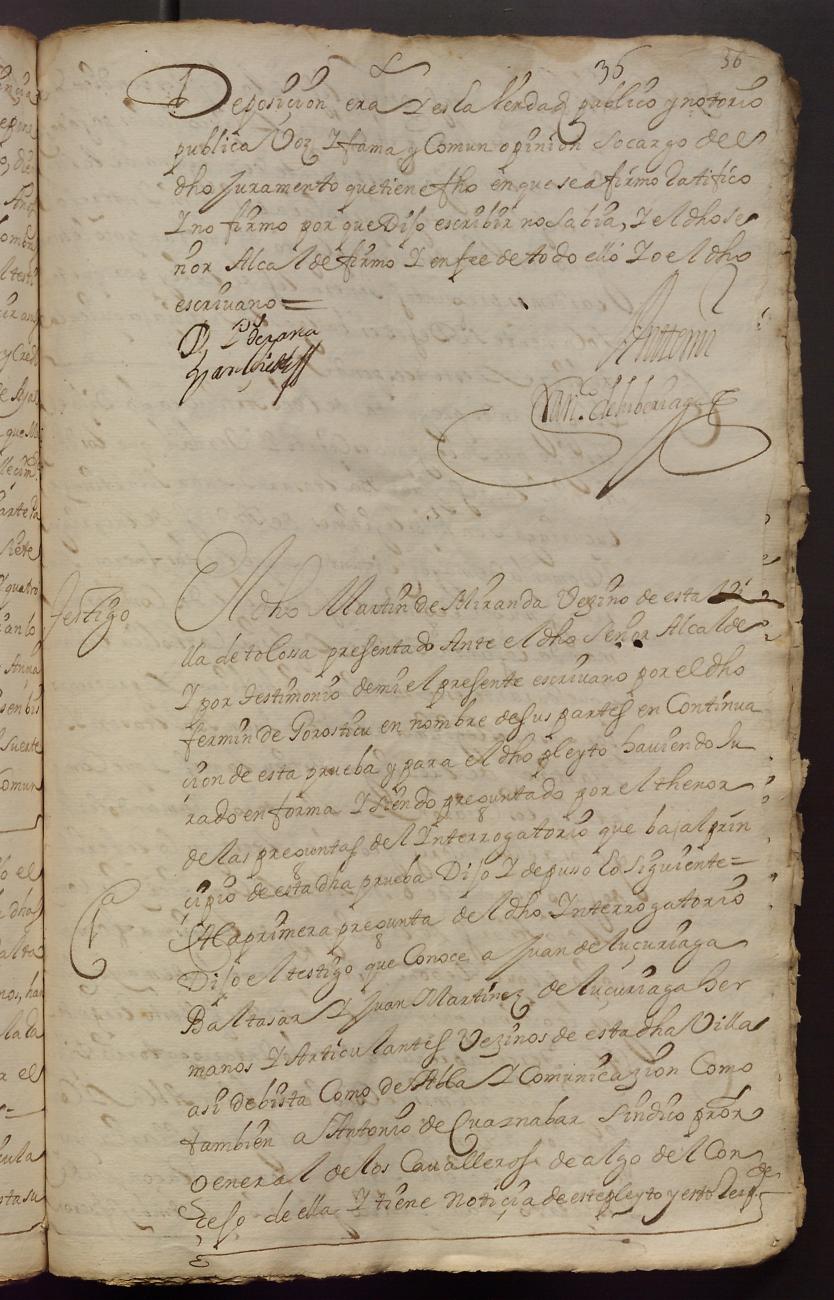 36 56
Deposiçion era Y es la Verdad publico y notorio
publica Voz Y fama y Comun opinion socargo del
dho Juramento que tiene fho en que se afirmo Ratifico
Y no firmo por que Dijo escribir no sabia, Y el dho se
ñor Alcalde firmo Y en fee de todo ello Yo el dho
escriuano =
Antonio
Testigo
El dho Martin de Miranda Vezino de esta Vi
lla de tolossa presentado Ante el dho Señor Alcalde
Y por testimonio demi el presente escriuano por el dho
fermin de Gorosticu en nombre de sus partes en Continua
cion de esta prueba y para el dho pleyto hauiendo Ju
rado en forma Y siendo preguntado por el thenor
de las preguntas del Interrogatorio que ba al prin
cipio de esta dha prueba Dijo Y depuso Lo siguiente =
1ª
A la primera pregunta del dho Interrogatorio
Dijo el testigo que Conoce a Juan de luçuriaga
Baltasar Y Juan Martinez de luçuriaga her
manos Y Articulantes Vezinos de esta dha Villa
asi de bista Como de Abla Y Comunicazion Como
tambien a Antonio de Cuaznabar Sindico pror
General de los Caualleros de algo del Con
cejo de ella Y tiene notiçia de este pleyto y esto Resp de